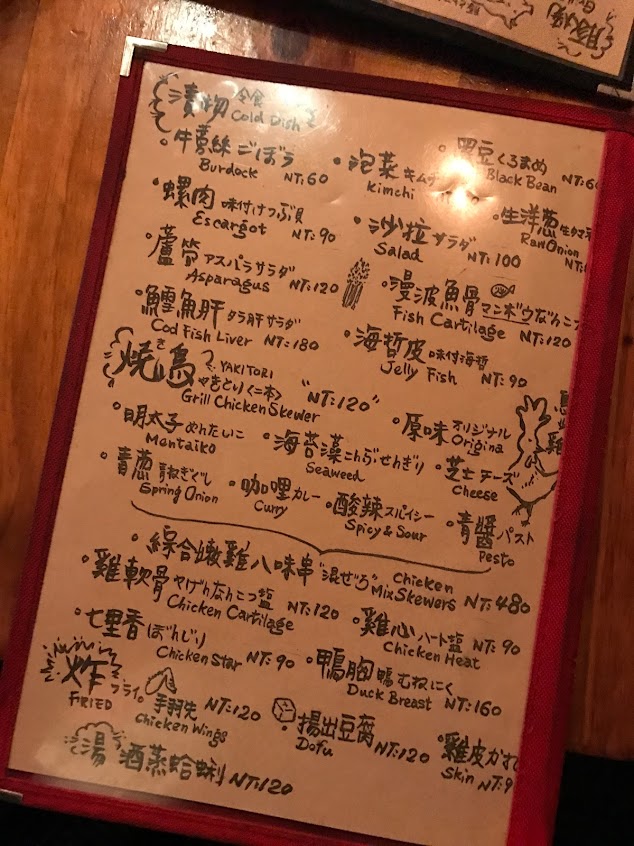 漬物 冷食 Cold Dish
牛蒡絲 ごぼう Burdock NT:60
泡菜 キムチ Kimchi
黑豆 くろまめ Black Bean NT:60
螺肉 味付けつぶ貝 Escargot NT:90
沙拉 サラダ Salad NT:100
生洋葱 Raw Onion
蘆筍 アスパラサラダ Asparagus NT:120
漫波魚骨 マンボウなんこつ Fish Cartilage NT:120
鱈魚肝 タラ肝サラダ Cod Fish Liver NT:180
海哲皮 味付海哲 Jelly Fish NT:90
焼き鳥 YAKITORI やきとり〈二本〉 "NT:120"
Grill Chicken Skewer
明太子 めんたいこ Mentaiko
海苔藻 こんぶせんぎり Seaweed
原味 オリジナル Origina
青葱 Spring Onion
咖哩 カレー Curry
酸辣 スパイシー Spicy & Sour
芝士 チーズ Cheese
青醬 パスト Pesto
綜合嫩雞八味串 "混ぜろ" Chicken Mix Skewers NT:480
雞軟骨 やげんなんこつ塩 Chicken Cartilage NT:120
雞心 ハート塩 Chicken Heat NT:90
七里香 ぼんじり Chicken Star NT:90
鴨胸 鴨むねにく Duck Breast NT:160
炸 フライ。 FRIED
手羽先 Chicken Wings NT:120
揚出豆腐 Dofu NT:120
雞皮 Skin
湯 酒蒸蛤蜊 NT:120